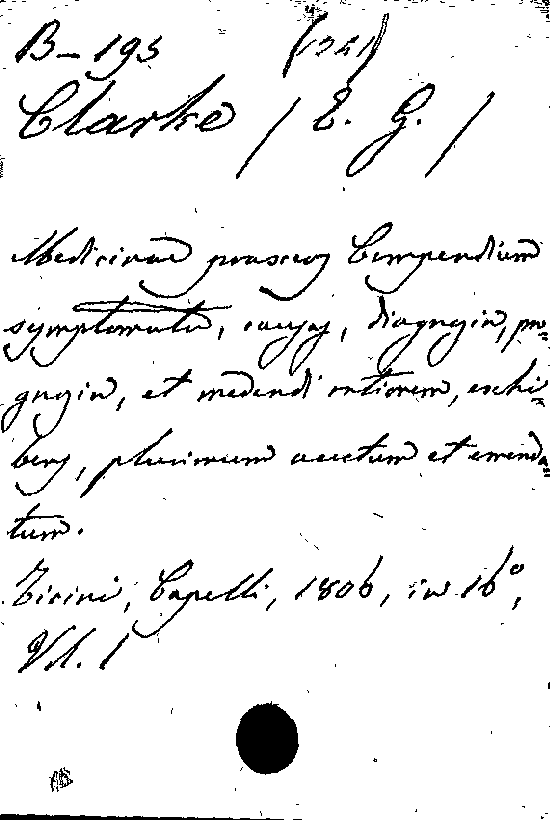 B-193 (1341)
Clarke / E. G. /
Medicinae praxeos Compendium
symptomata, causas, diagnosin, pro=
gnosin, et medendi rationem, exhi=
bens, plurimum auctum et emenda=
tum.
Ticini, Capelli, 1806, in 16°,
Vol. 1